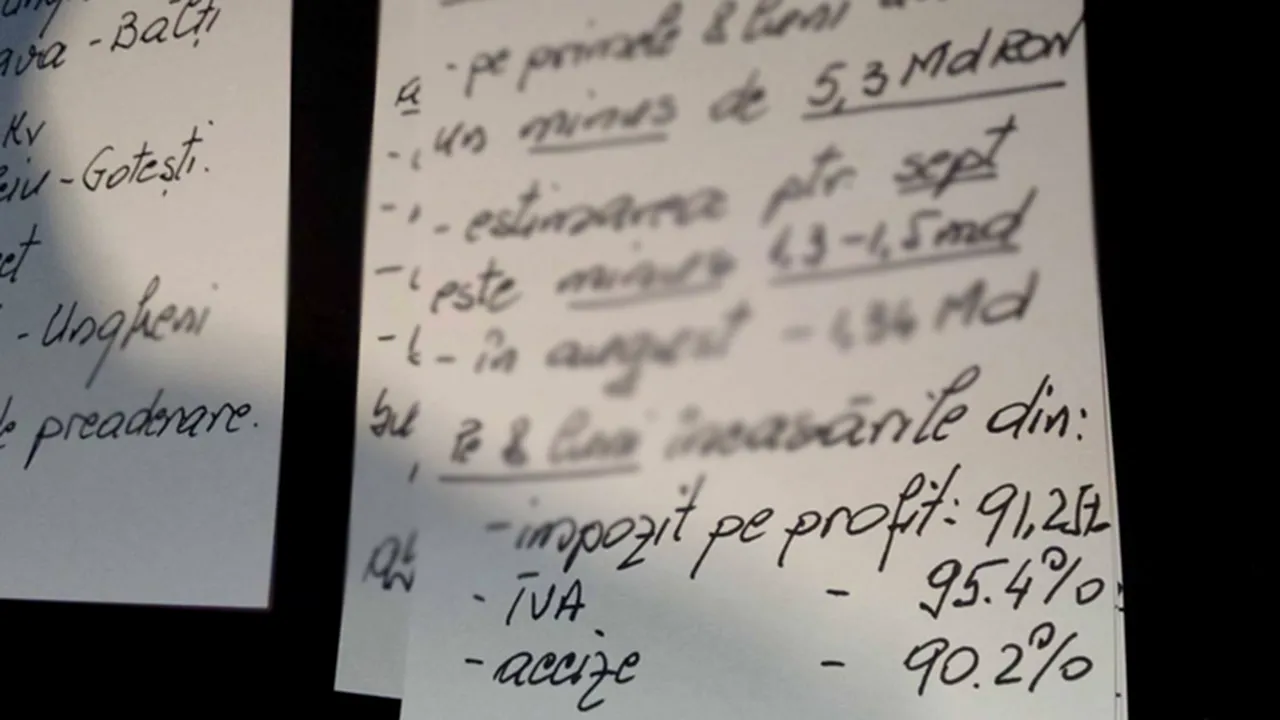 ava - Bălți
KV
eiu - Gotești.
et
- Ungheni
e preaderare.
- pe primele 8 luni
un minus de 5,3 Md RON
- estimarea ptr. sept
este minus 1,3 - 1,5 md
- în august - Md
Pe 8 luni încasările din:
- impozit pe profit: 91,2
- TVA - 95.4%
- accize - 90.2%